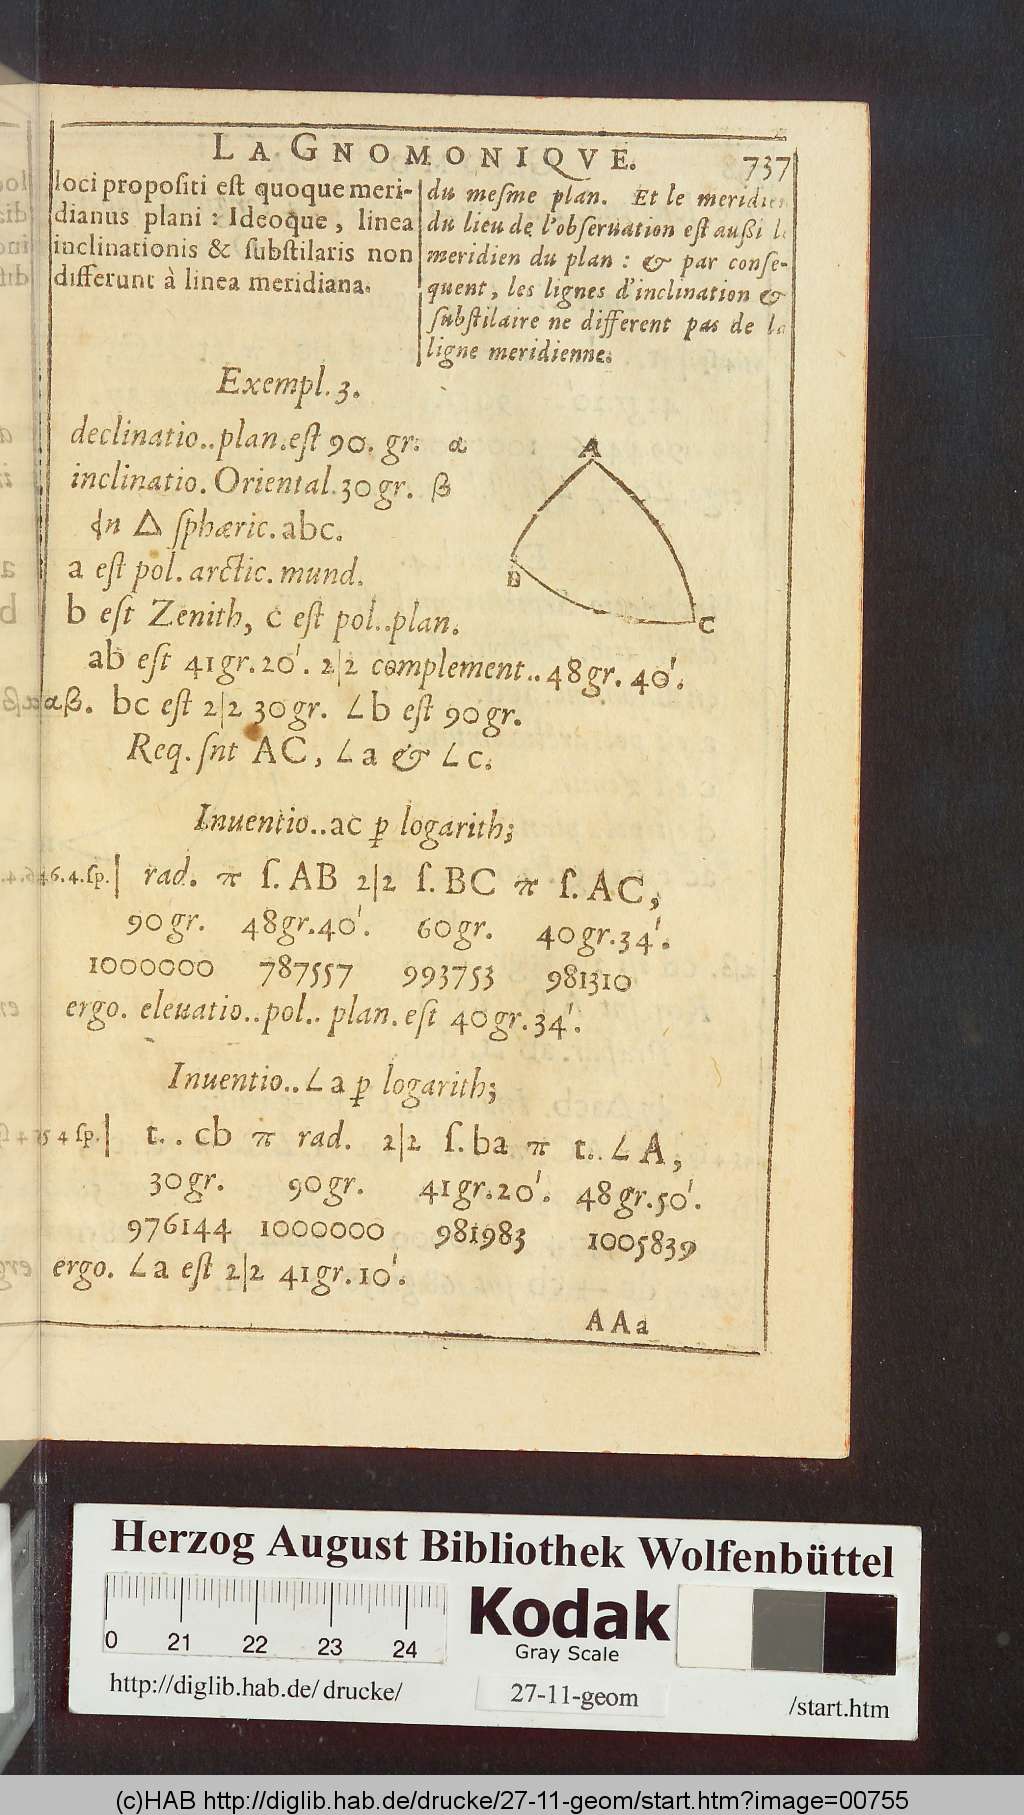 LA GNOMONIQVE. 737
loci propositi est quoque meri-
dianus plani : Ideoque , linea
inclinationis & substilaris non
differunt à linea meridiana.
du mesme plan. Et le meridien
du lieu de l'obseruation est außi le
meridien du plan : & par conse-
quent, les lignes d'inclination &
substilaire ne different pas de la
ligne meridienne.
Exempl. 3.
declinatio..plan.est 90. gr: α
inclinatio. Oriental.30gr. β
In △ sphæric. abc.
a est pol. arctic. mund.
b est Zenith, c est pol..plan.
ab est 41gr.20'. 2|2 complement..48gr. 40'.
αβ. bc est 2|2 30gr. ∠b est 90gr.
Req. snt AC, ∠a & ∠c.
A
B
C
Inuentio..ac p logarith;
46.4.sp.| rad. π s.AB 2|2 s.BC π s.AC,
90gr. 48gr.40'. 60gr. 40gr.34'.
1000000 787557 993753 981310
ergo. eleuatio..pol.. plan.est 40gr.34'.
Inuentio..∠a p logarith;
35 4 sp.| t..cb π rad. 2|2 s.ba π t..∠A,
30gr. 90gr. 41gr.20'. 48gr.50'.
976144 1000000 981983 1005839
ergo. ∠a est 2|2 41gr.10'.
AAa
Herzog August Bibliothek Wolfenbüttel
0 21 22 23 24
Kodak
Gray Scale
http://diglib.hab.de/drucke/
27-11-geom
/start.htm
(c)HAB http://diglib.hab.de/drucke/27-11-geom/start.htm?image=00755